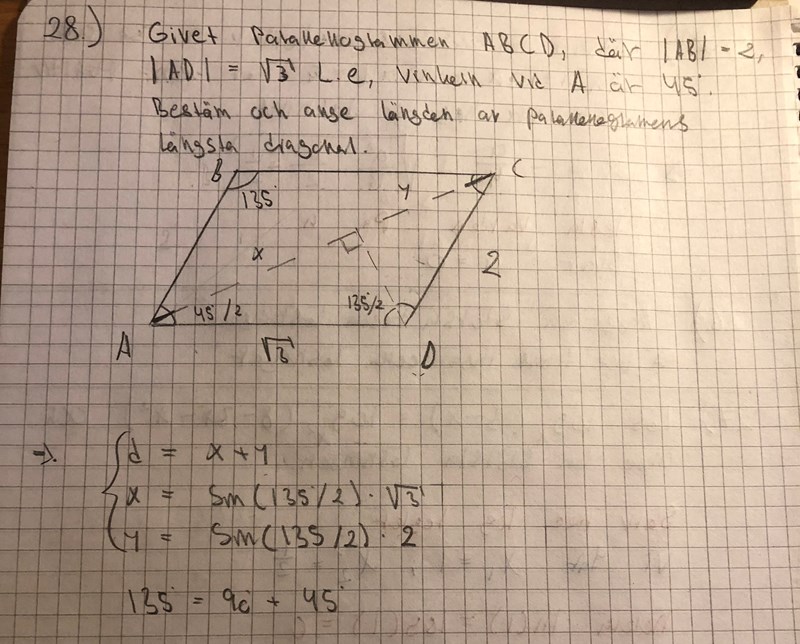 28.) Givet Parallellogrammen ABCD, där |AB| = 2,
|AD| = √3 l.e, vinkeln vid A är 45°.
Bestäm och ange längden av parallellogramens
längsta diagonal.
B C
135°
y
x
2
45°/2 135/2
A √3 D
⇒. { d = x + y
x = Sin(135°/2) · √3
y = Sin(135/2) · 2
135° = 90° + 45°